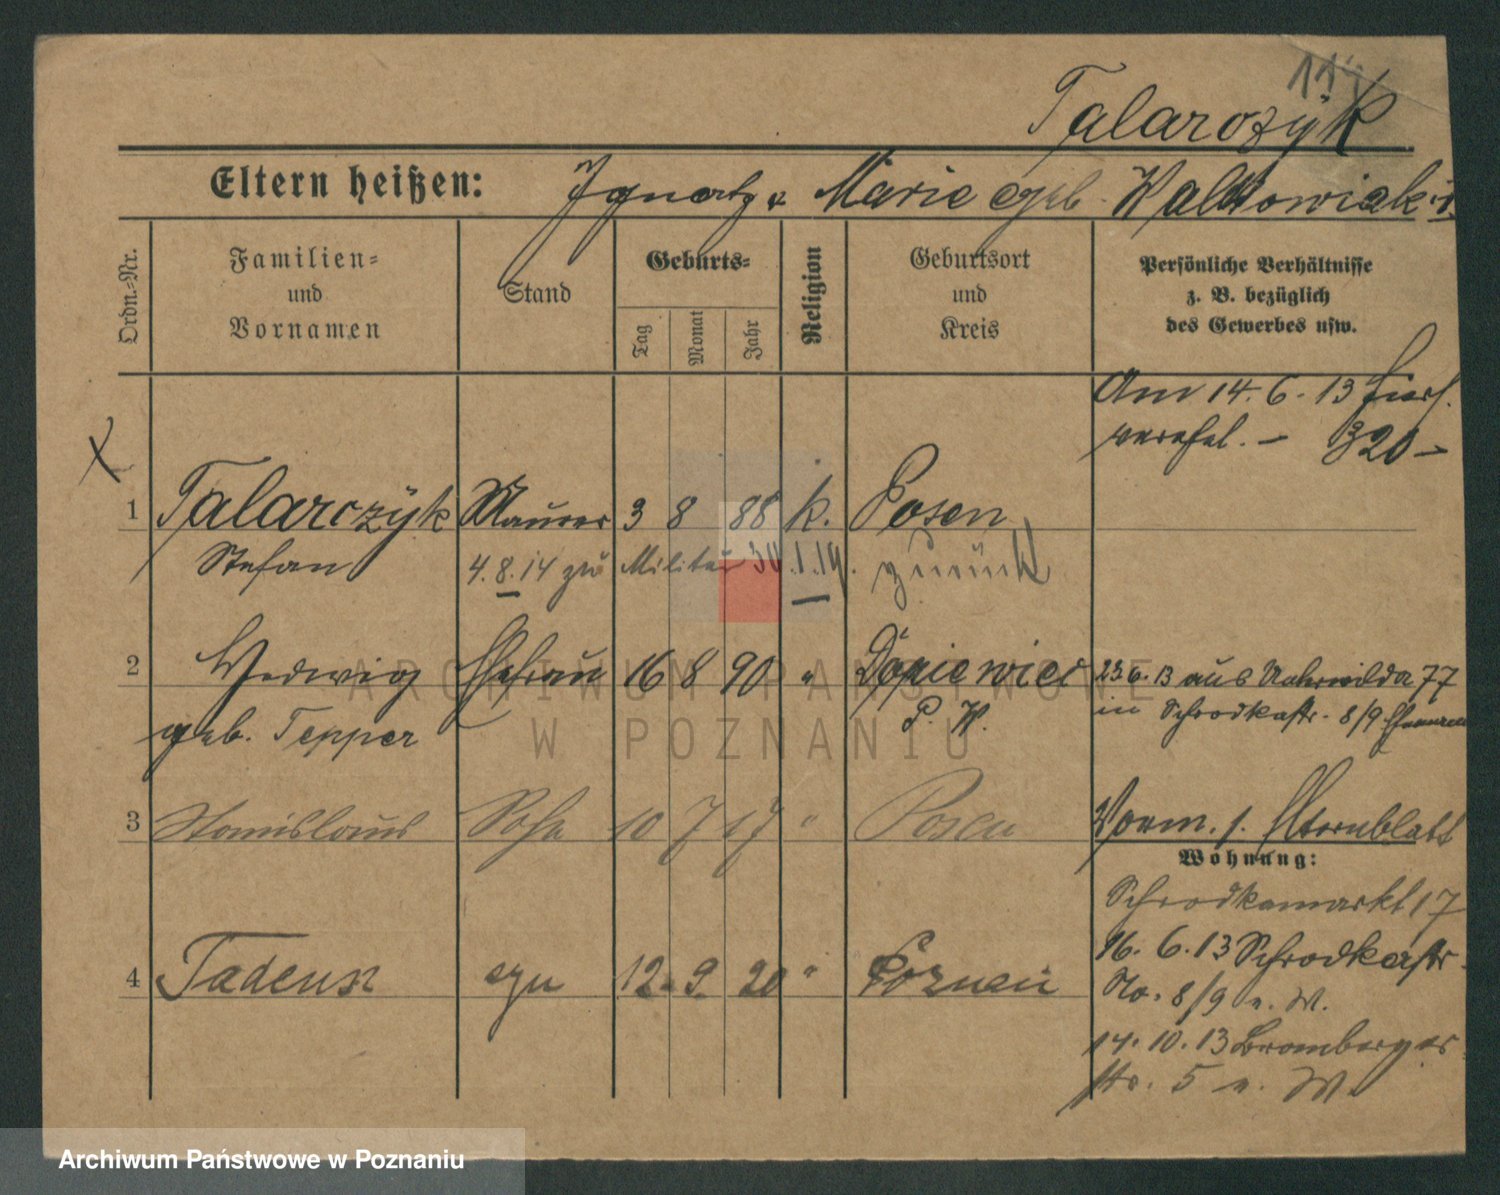 117
Talarczÿk
Eltern heißen: Ignatz u. Marie geb. Walkowiak
Ordn.-Nr.
Familien- und Vornamen
Stand
Geburts-
Tag
Monat
Jahr
Religion
Geburtsort und Kreis
Persönliche Verhältnisse
z. B. bezüglich
des Gewerbes usw.
Am 14.6.13 hier
verehel. – 320 –
1 Talarczÿk Maurer 3 8 88 k. Posen
Stefan 4.8.14 zu Militär 30.1.19. zurück
2 Hedwig Ehefrau 16 8 90 " Dopiewiec 23.6.13 aus 77
geb. Tepper P. W. in Schrodkastr. 8/9
3 Stanislaus Sohn 10 7 17 " Posen Vorm. s. Elternblatt
Wohnung:
Schrodkamarkt 17
4 Tadeusz syn 12 9 20 " Poznań 16.6.13 Schrodkastr.
No. 8/9 n. W.
14.10.13 Bromberger
str. 5 n. W.
ARCHIWUM PAŃSTWOWE
W POZNANIU
Archiwum Państwowe w Poznaniu